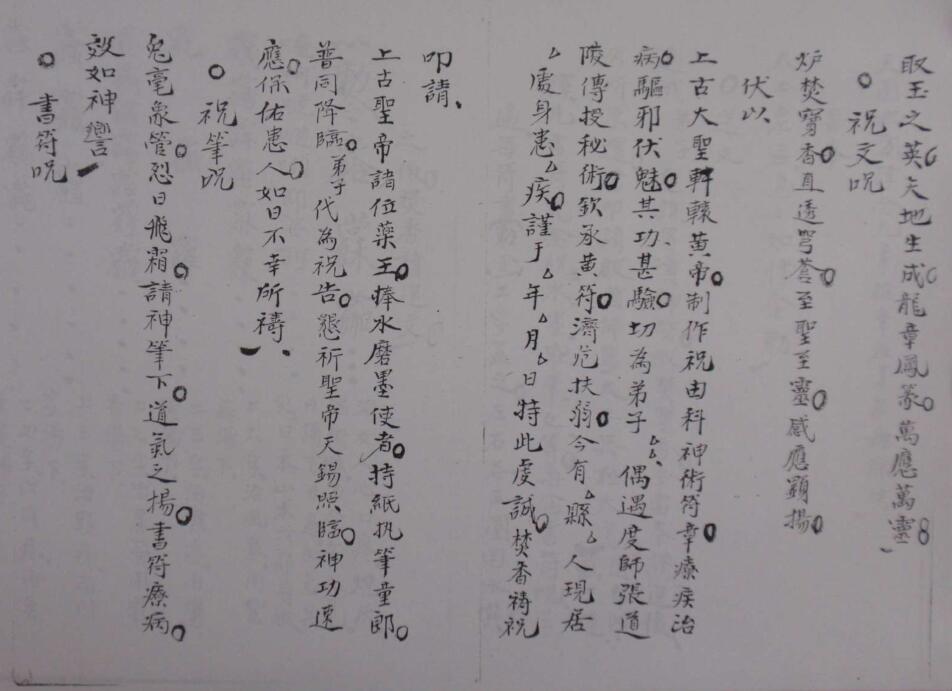 取玉之英天地生成。龍章鳳篆。萬應萬靈
○祝文呪
炉焚寶香。直透穹蒼。至聖至靈。感應顕揚。
伏以
上古大聖軒轅黃帝。制作祝由科神術符章。療疾治
病。驅邪伏魅。其功甚驗。切為弟子△△偶遇度師張道
陵傳授秘術。欽承黃符。濟危扶弱。今有△縣△人現居
△處身患△疾。謹于△年△月△日特此虔誠。焚香禱祝
叩請、
上古聖帝諸位藥王。捧水磨墨使者。持紙执筆童郎。
普同降臨。弟子代為祝告。懇祈聖帝天錫照臨。神功速
應。保佑患人。如日不幸所禱、
○祝筆呪
兔毫象管。烈日飛霜。請神筆下。道氣之揚。書符療病。
效如神響
○書符呪